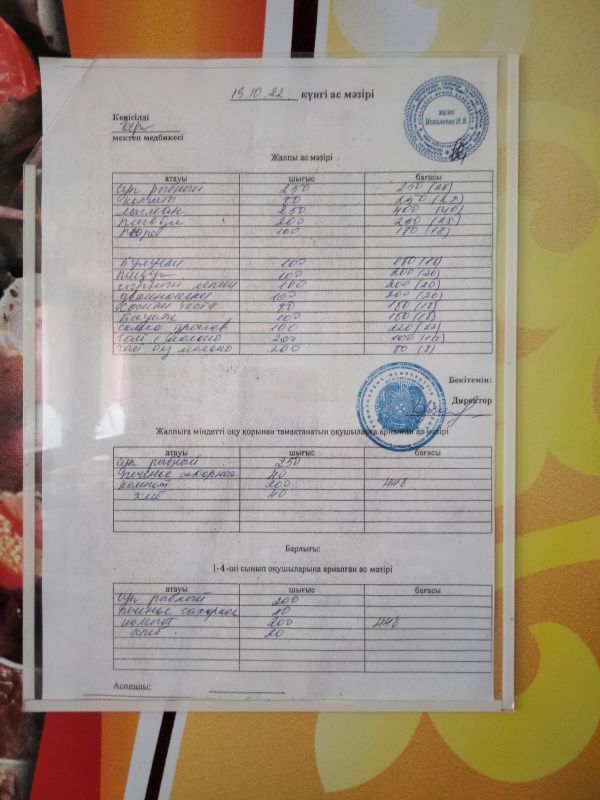 13.10.22 күнгі ас мәзірі
Келісілді
мектеп медбикесі
ЖК/ИП
Искалеева И.В.
Жалпы ас мәзірі
атауы шығыс бағасы
суп рыбный 250 250 (25)
80
250 400 (40)
200 250 (25)
100 180 (18)
Булочки 100 180 (18)
пицца 100 200 (20)
100 200 (20)
100 200 (20)
теста 80 180 (18)
100 180 (18)
100 220 (22)
чай с молоко 200 100 (10)
чай без молоко 200 80 (8)
Бекітемін:
Директор
Жалпыға міндетті оқу қорынан тамақтанатын оқушыларға арналған ас мәзірі
атауы шығыс бағасы
суп рыбный 250
печенье сахарное 40
компот 200 448
хлеб 40
Барлығы:
1-4-ші сынып оқушыларына арналған ас мәзірі
атауы шығыс бағасы
суп рыбный 200
печенье сахарное 40
компот 200 448
хлеб 20
Аспазшы: